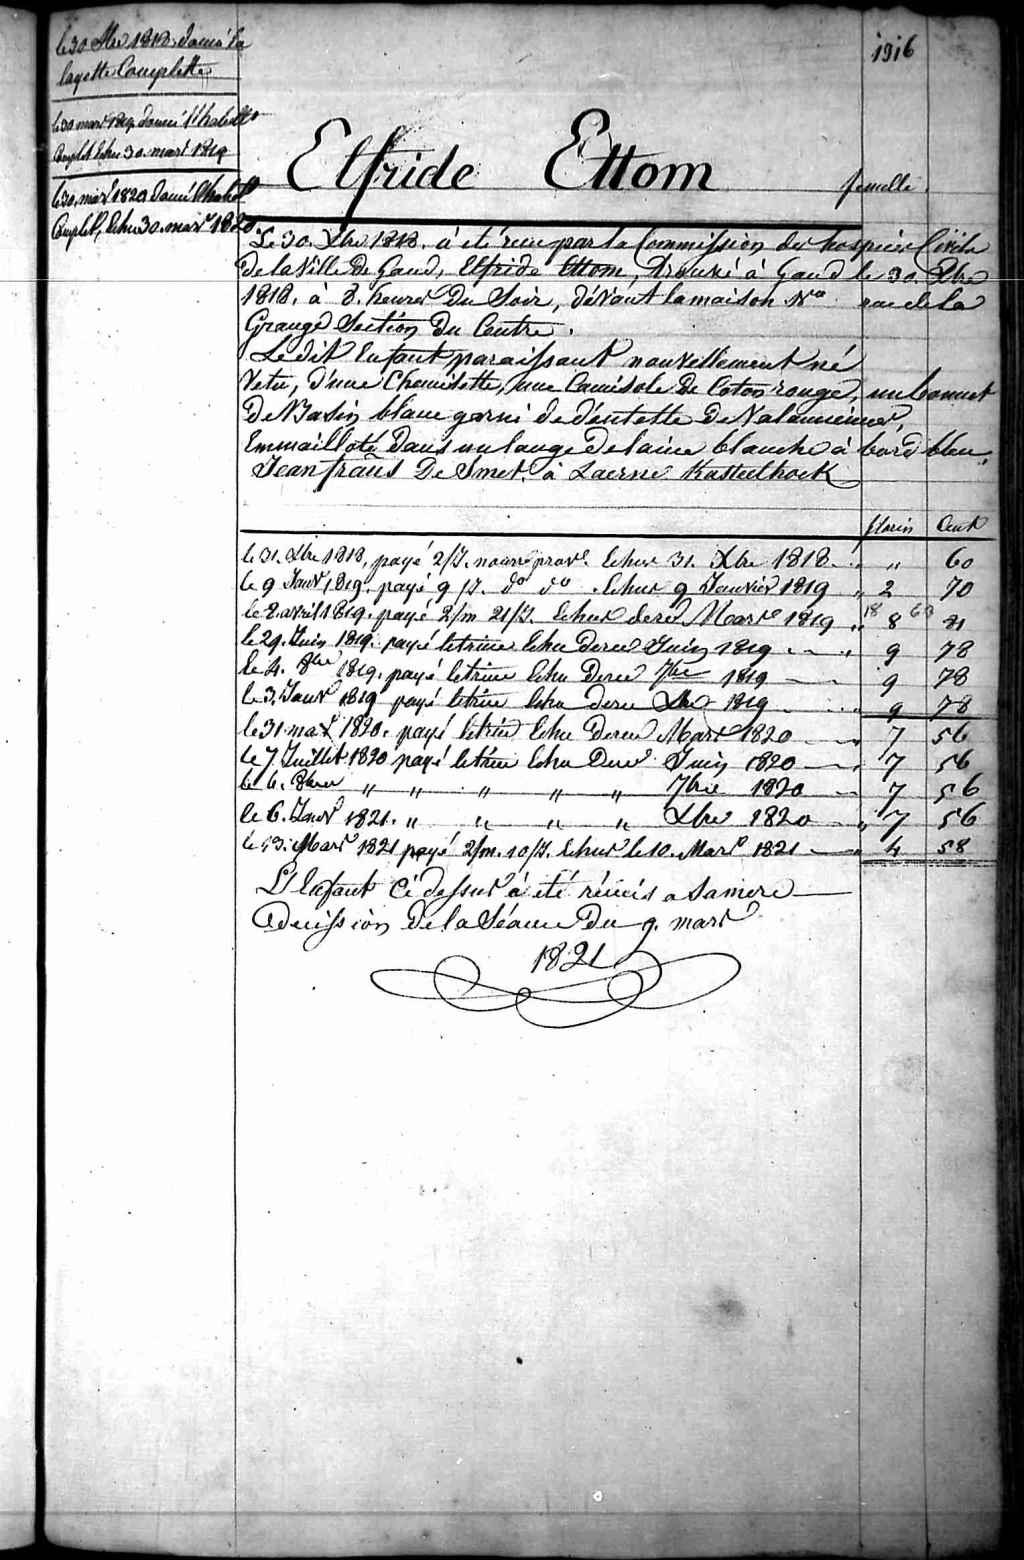 1916
le 30 Xbre 1818. donné la
layette Complette
le 30 mars 1819 donné l'habillt
Complet Echu 30. mars 1819
le 30. mars 1820 donné l'habillt
Complet, Echu 30. mars 1820
Elfride Ettom femelle.
Le 30. Xbre 1818. à été reçu par la Commission des hospices Civils
de la Ville de Gand, Elfride Ettom, trouvé à Gand le 30. Xbre
1818, à 8. heures du Soir, dévant la maison No rue de la
Grange Section du Centre.
Le dit Enfant paraissant nouvellement né
Vetu, d'une Chemisette, une Camisole de Coton rouge, un bonnet
de Basin blanc garni de dentelle de Valancienne,
Emmailloté dans un lange de laine blanche à bord bleu.
Jean frans De Smet. à Laerne Kasteelhoek
florin Cent
le 31. Xbre 1818, payé 2/J. nourre provre Echus 31. Xbre 1818. „ 60
le 9 Janvr 1819. payé 9/J. do do . Echus 9 Janvier 1819 „ 2 70
le 2. avril 1819. payé 2/m 21/J. Echus dere Mars 1819 „ 8 81
18 68
le 29. Juin 1819. payé le trime Echu dere Juin 1819 „ 9 78
le 4. 8bre 1819. payé le trime Echu Dere 7bre 1819 9 78
le 3. Janvr 1819 payé le trime Echu dere Xbre 1819 „ 9 78
le 31 mars 1820. payé le trime Echu Dere Mars 1820 „ 7 56
le 7 Juillet 1820 payé le trime Echu Dere Juin 1820 „ 7 56
le 6. 8bre „ „ „ „ „ 7bre 1820 7 56
le 6. Janvr 1821. „ „ „ „ Xbre 1820 „ 7 56
le 13. Mars 1821 payé 2/m. 10/J. Echus le 10. Mars 1821 „ 4 58
L'Enfant Ci dessus à été rémis a sa mere
Decission de la Séance du 9. mars
1821